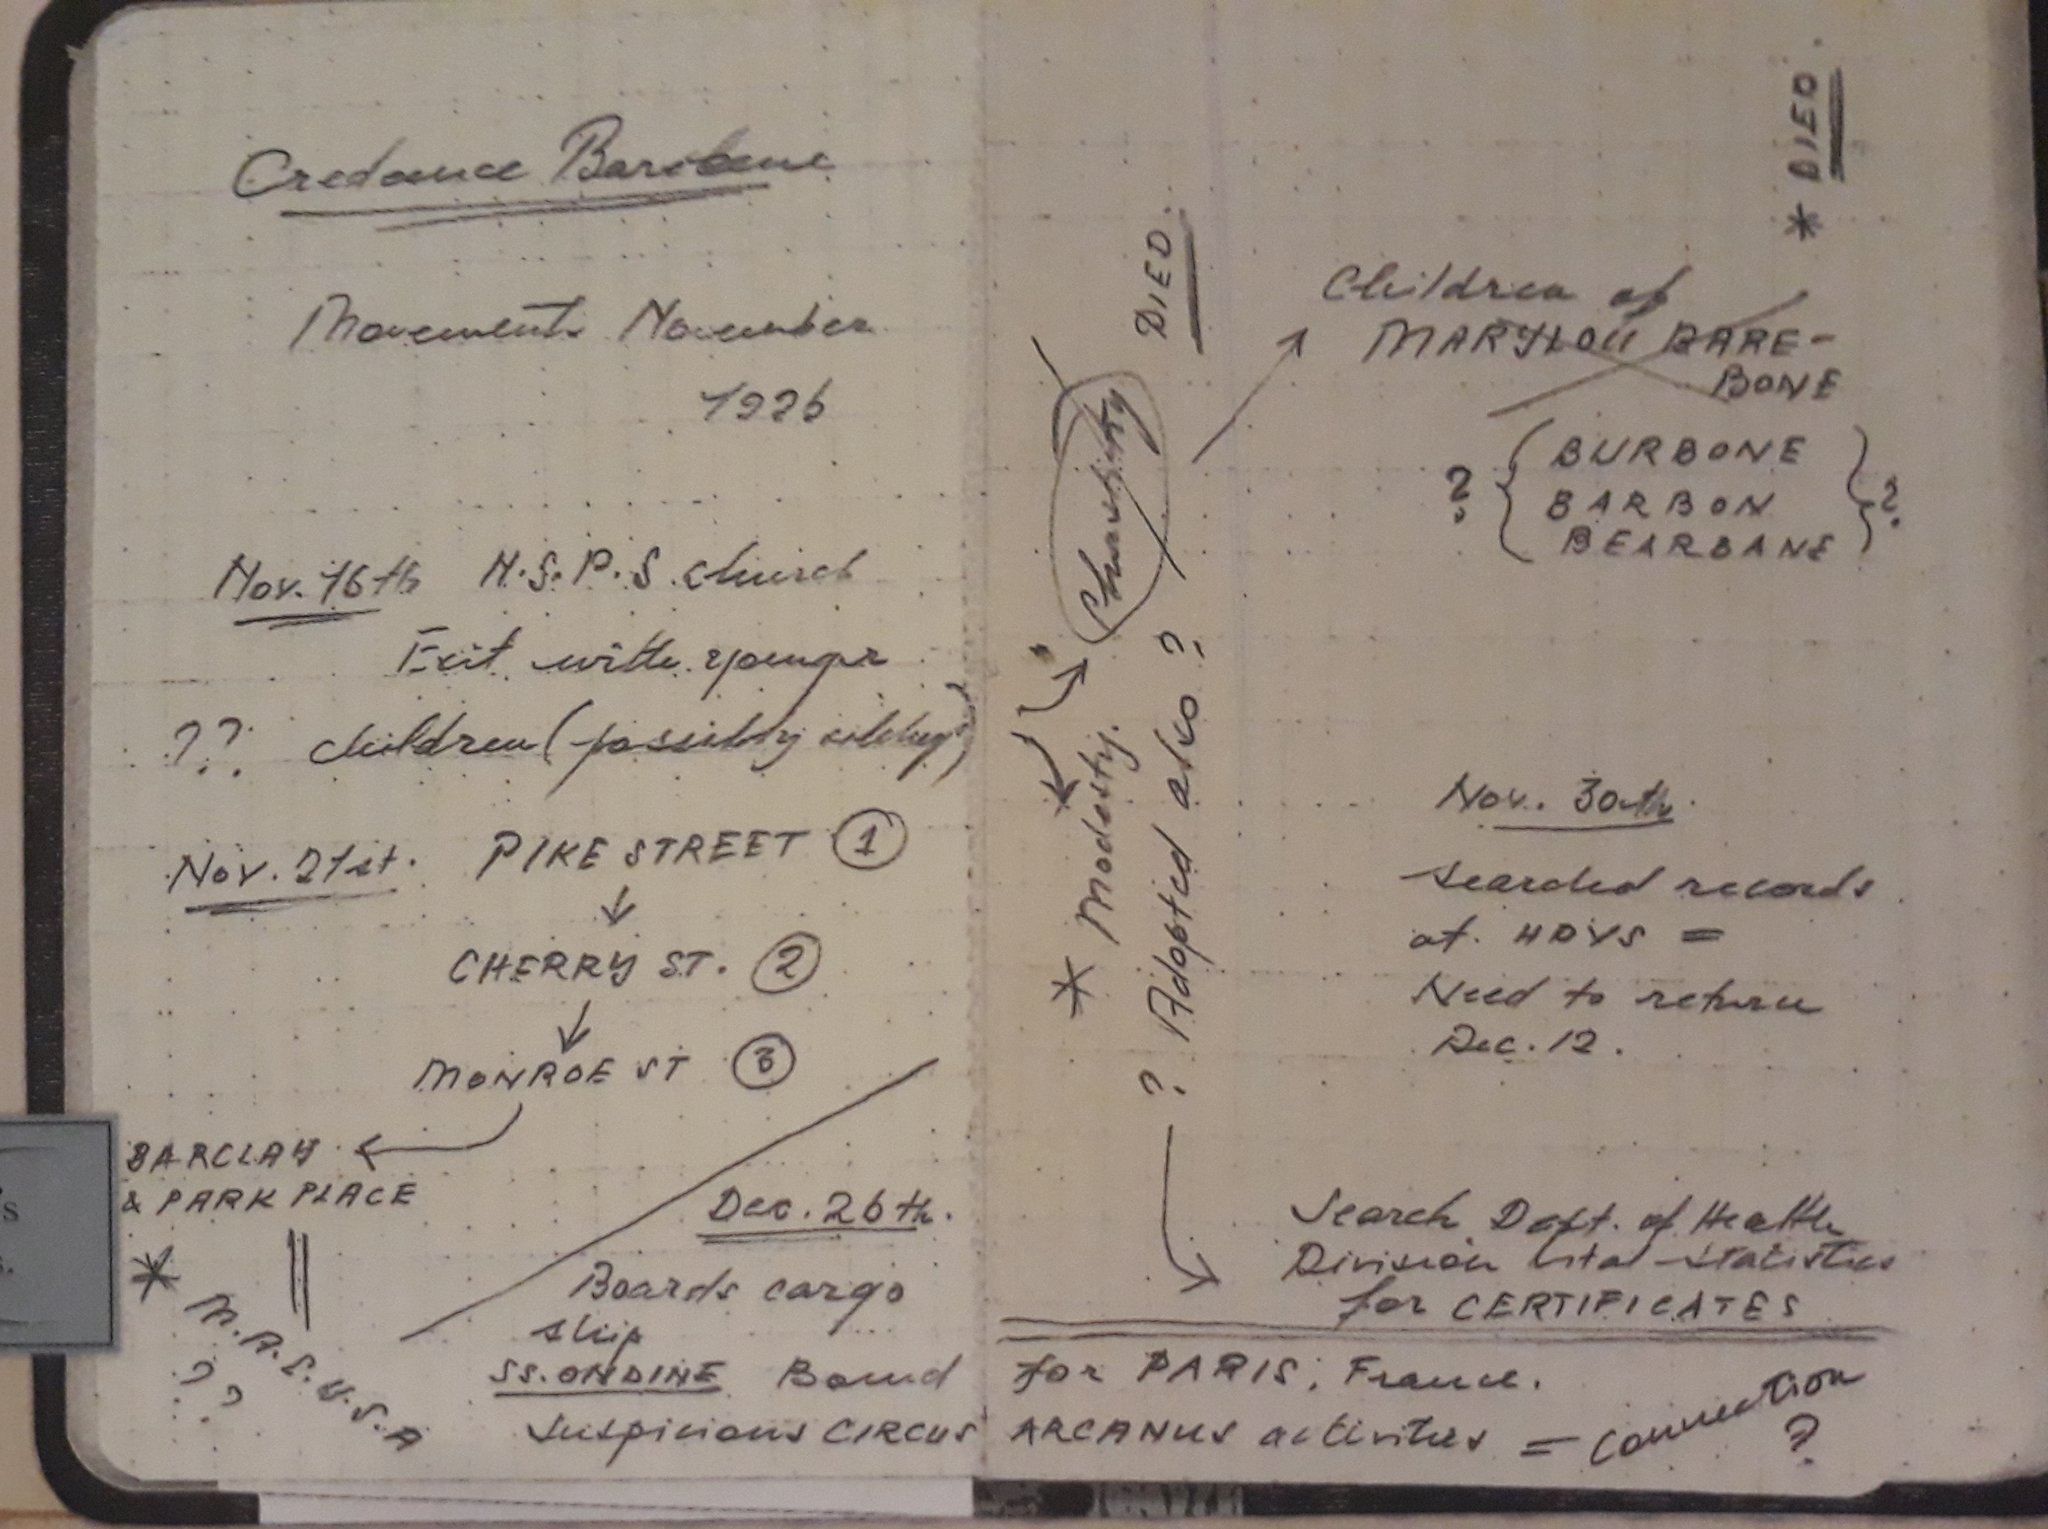 Credance Barebone
Movements November
1926
Nov. 16th N.S.P.S. church
Exit with younger
?? children (possibly siblings)
Nov. 21st. PIKE STREET 1
CHERRY ST. 2
MONROE ST 3
BARCLAY
& PARK PLACE
* M.A.C.U.S.A
??
Dec. 26th.
Boards cargo
ship
SS. ONDINE Bound for PARIS, France.
Suspicious CIRCUS ARCANUS activities = connection
?
DIED.
Chastity
* Modesty.
? Adopted also ?
* DIED.
Children of
MARYLOU BARE-
BONE
? { BURBONE } ?
BARBON
BEARBANE
Nov. 30th.
searched records
at HDVS =
Need to return
Dec. 12.
Search Dept. of Health
Division Vital Statistics
for CERTIFICATES